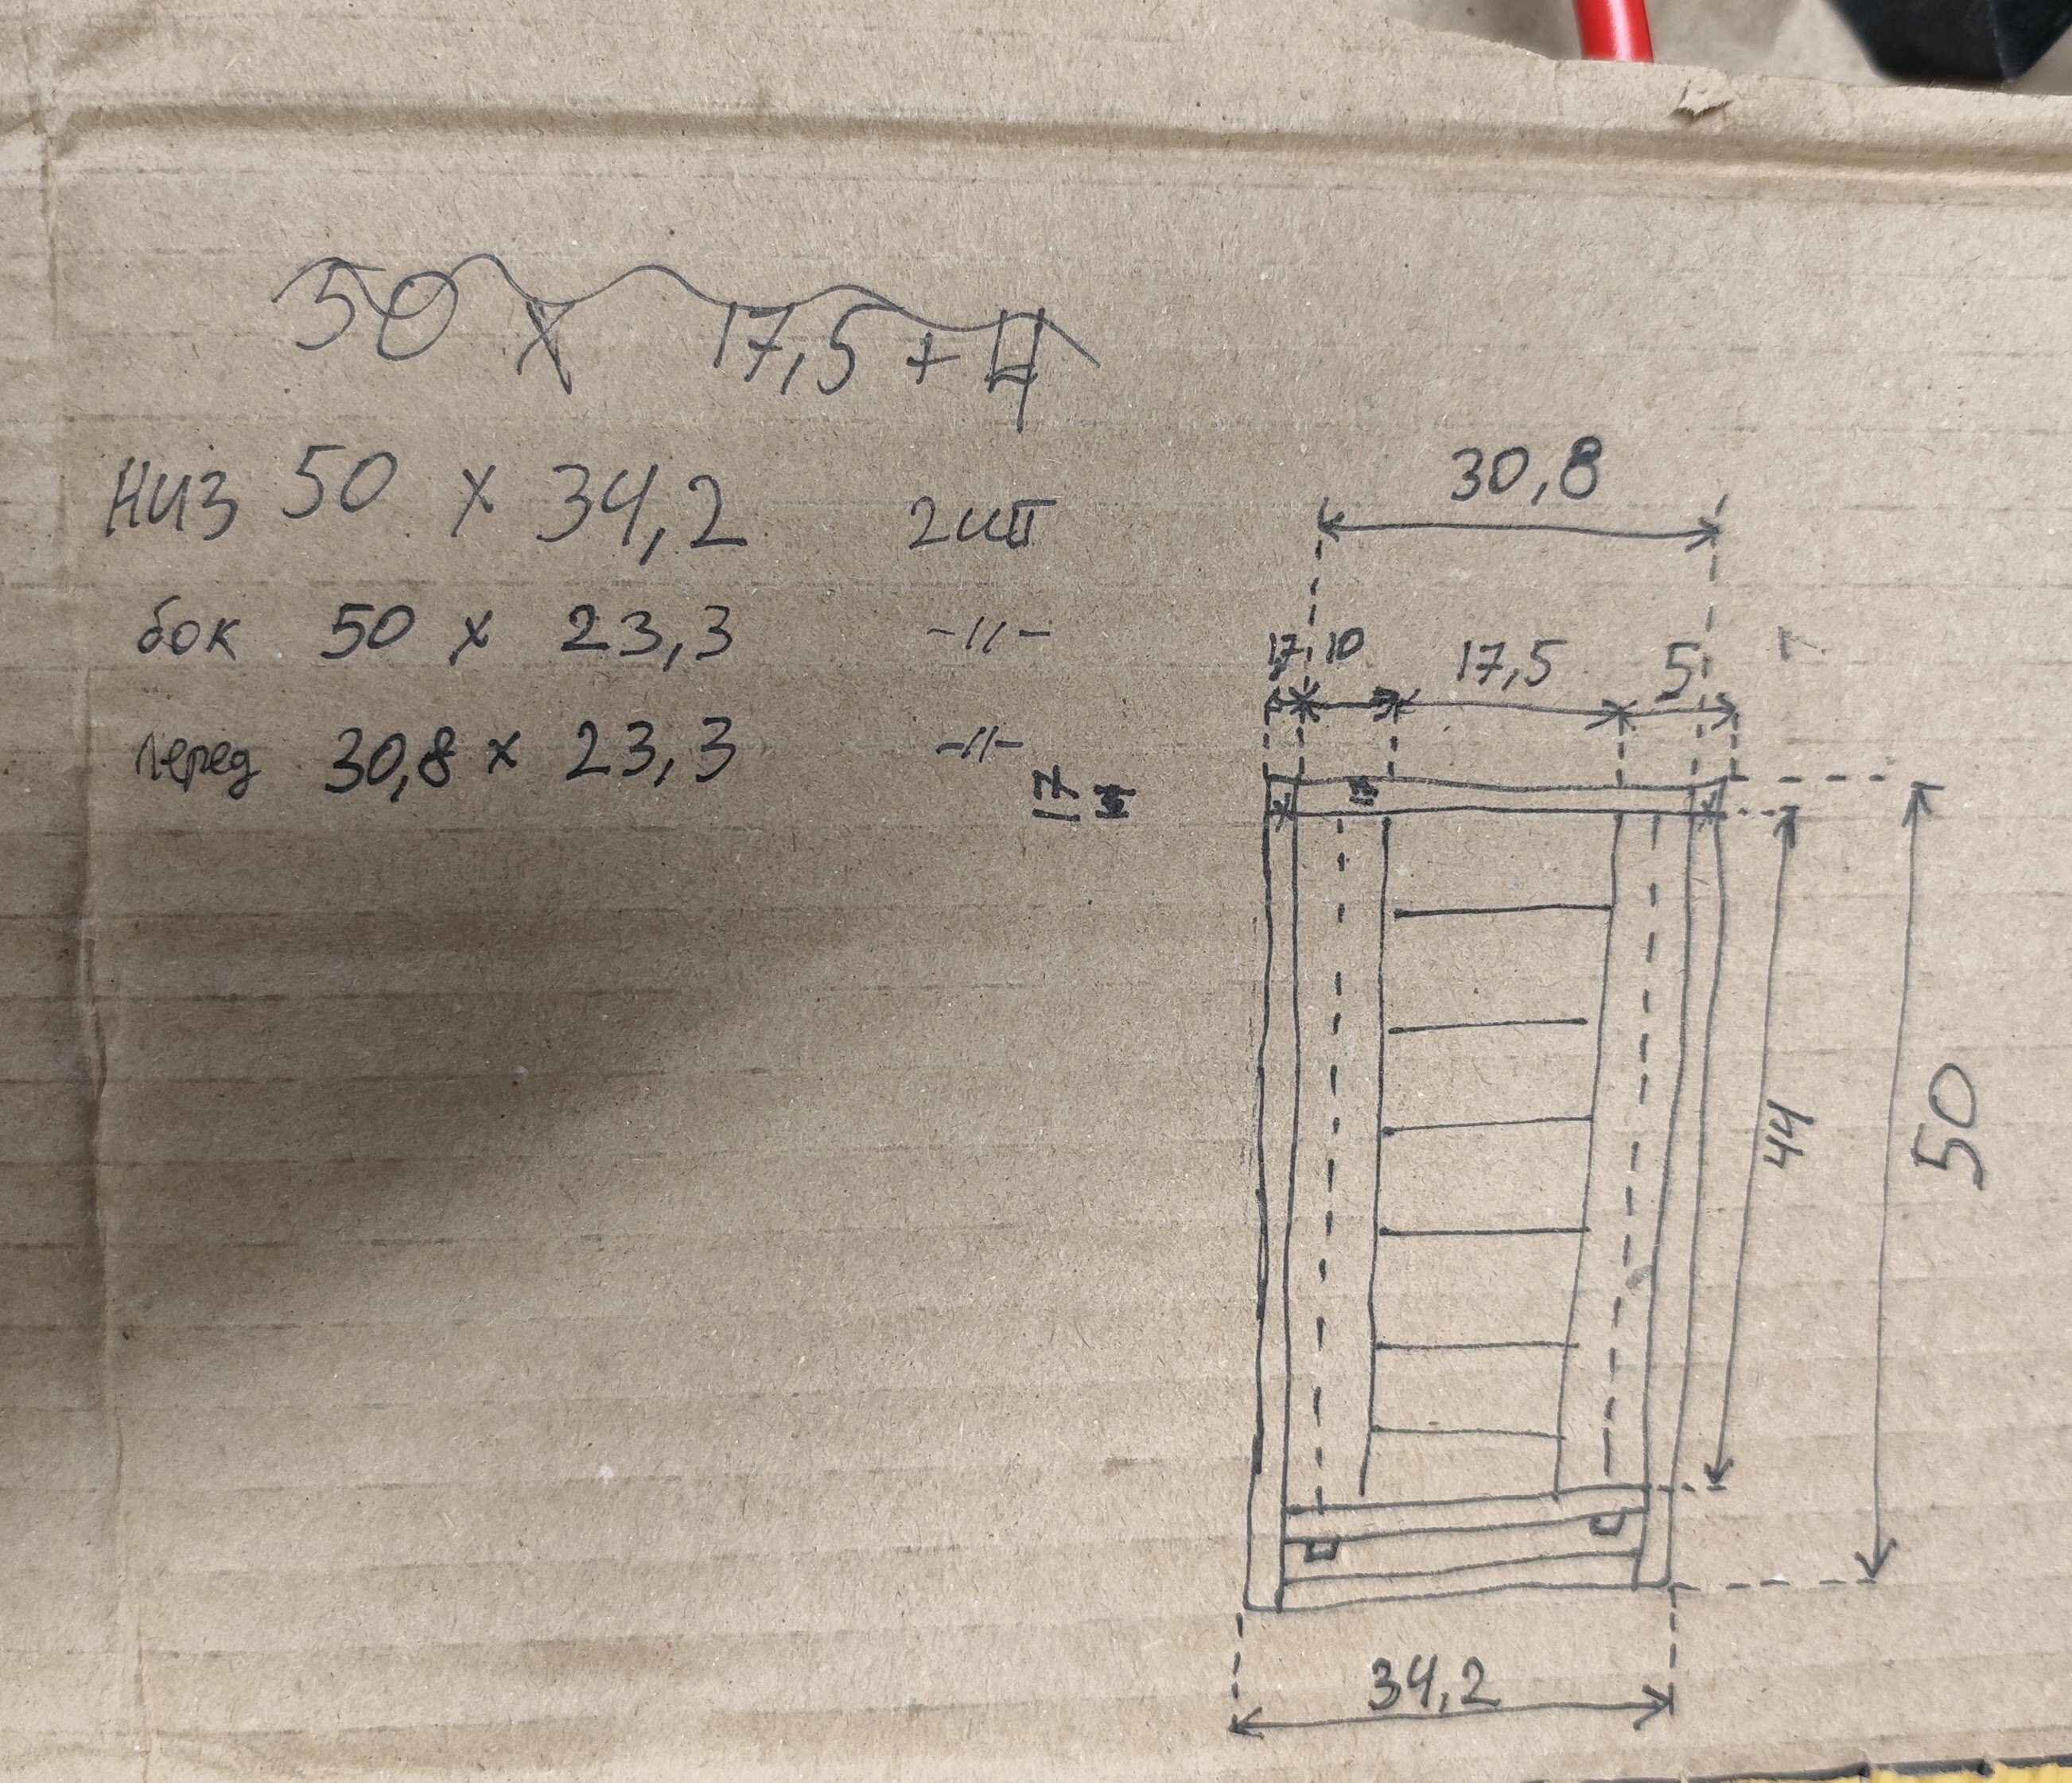 50 х 17,5 + 4
низ 50 х 34,2 2шт
бок 50 х 23,3 -//-
перед 30,8 х 23,3 -//-
17
30,8
17, 10 17,5 5
44
50
34,2